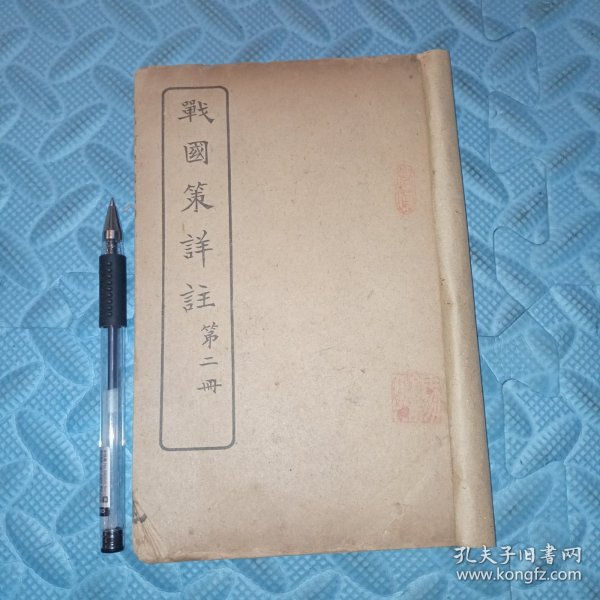 戰國策詳註
第二冊
孔夫子旧書网
www.kongfz.com